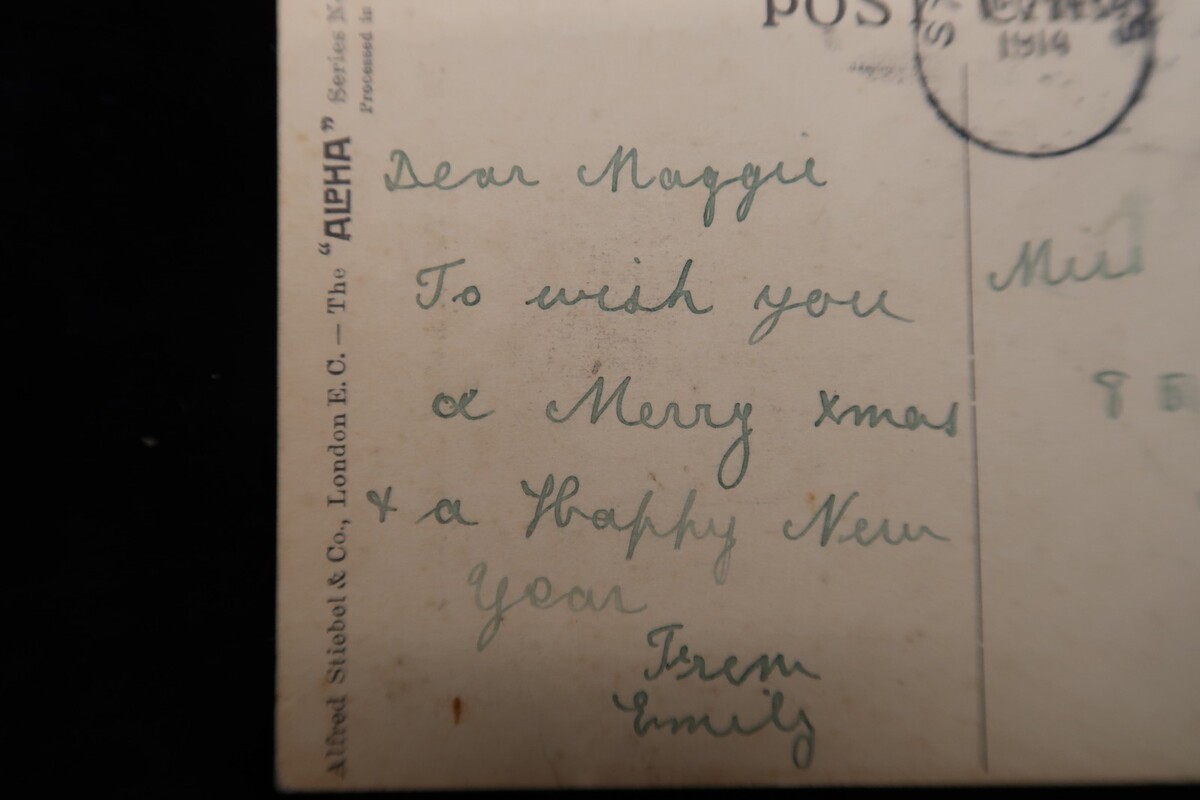 POST
1914
Alfred Stiebel & Co., London E. C. — The "ALPHA" Series
Processed in
Dear Maggie
To wish you
a Merry Xmas
& a Happy New
Year
From
Emily
Miss
8